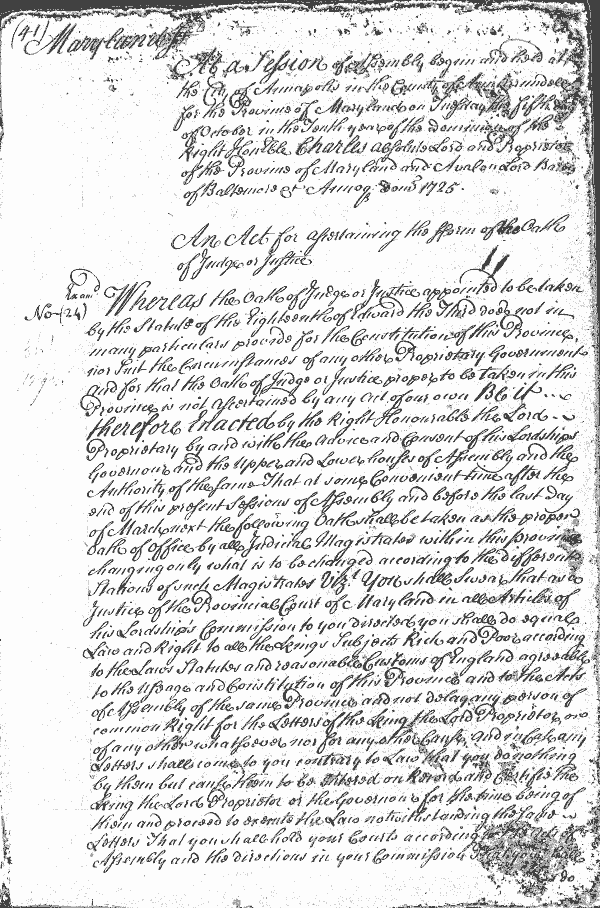 (41) Maryland ss
At a Session of Assembly begun and held at
the City of Annapolis in the County of Annarundel
for the Province of Maryland on Tuesday the Fifth day
of October in the Tenth year of the dominion of the
Right Honble Charles absolute Lord and Proprietor
of the Province of Maryland and Avalon Lord Baron
of Baltemore &c Annoq Domi 1725.
An Act for assertaining the fform of the Oath
of Judge or Justice
Examd
No (24)
Whereas the Oath of Judge or Justice appointed to be taken
by the Statute of the Eighteenth of Edward the Third does not in
many particulars provide for the Constitution of this Province,
nor Suit the Circumstances of any other Proprietary Government
and for that the Oath of Judge or Justice proper to be taken in this
Province is not assertained by any Act of our own Be it
therefore Enacted by the Right Honourable the Lord
Proprietary by and with the Advice and Consent of his Lordships
Governour and the Upper and Lower houses of Assembly and the
Authority of the Same That at some Convenient time after the
end of this present Sessions of Assembly and before the last Day
of March next the following Oath shall be taken as the proper
Oath of Office by all Judicial Magistrates within this Province
changing only what is to be changed according to the different
Stations of such Magistrates Vizt You shall Swear that as a
Justice of the Provincial Court of Maryland in all Articles of
his Lordship's Commission to you directed you shall do equal
Law and Right to all the Kings Subjects Rich and Poor according
to the Laws Statutes and reasonable Customs of England agreeable
to the Useage and Constitution of this Province and to the Acts
of Assembly of the same Province and not delay any person of
common Right for the Letters of the King the Lord Proprietor or
of any other whatsoever nor for any other Cause and in Case any
Letters shall come to you contrary to Law that you do nothing
by them but cause them to be entered on Record and Certifie the
King the Lord Proprietor or the Governour for the time being of
them and proceed to execute the Law notwithstanding the same
Letters That you shall hold your Courts according to the Acts of
Assembly and the directions in your Commission That you
do